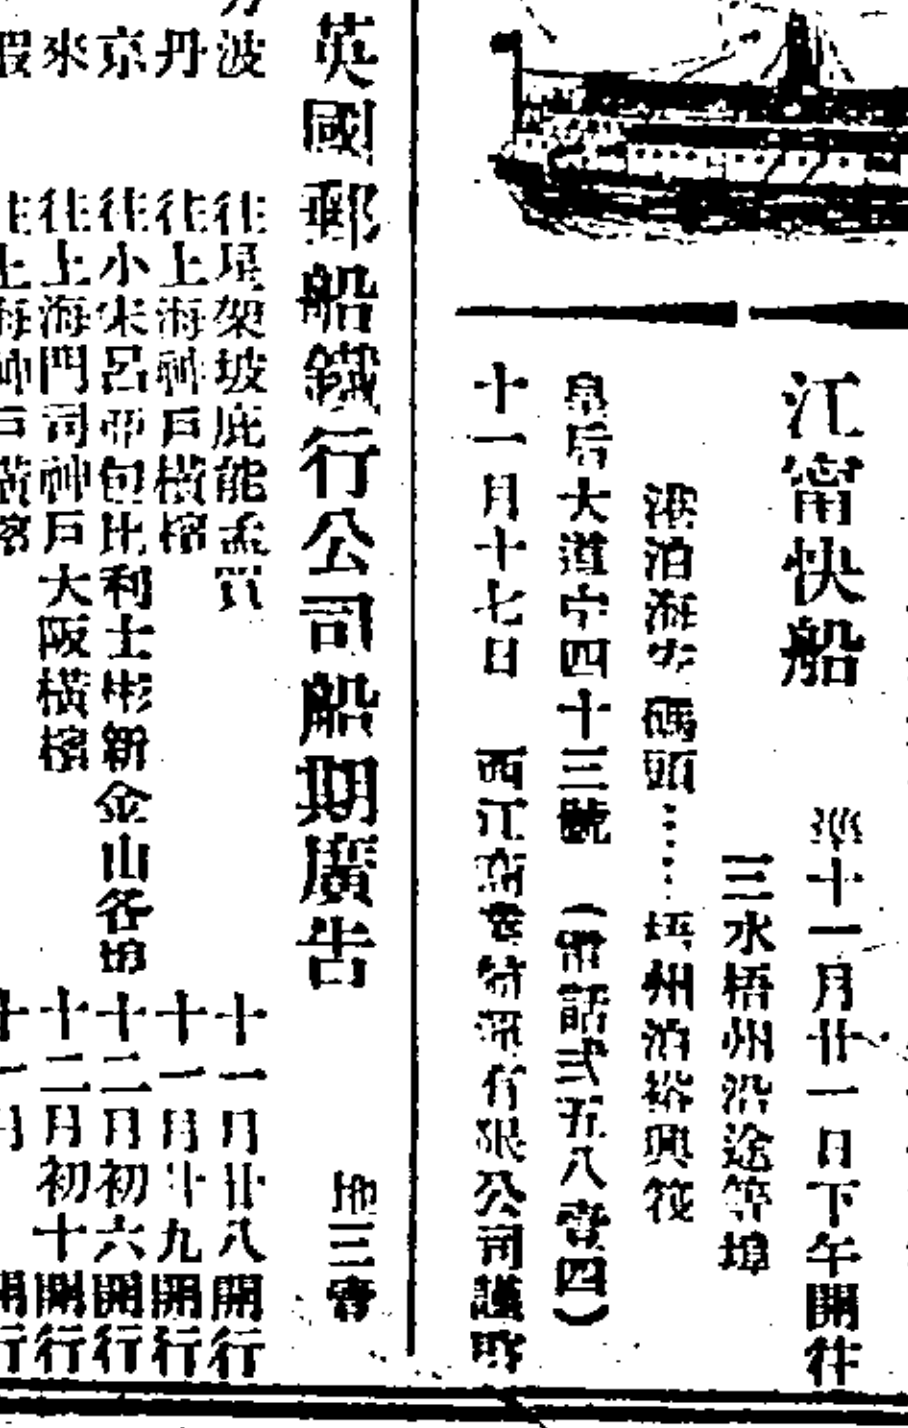 江甯快船
準十一月廿一日下午開往
三水梧州沿途等埠
港泊海安碼頭……梧州泊裕興筏
皇后大道中四十三號 (電話弍五八壹四)
十一月十七日 西江 有限公司謹啓
英國郵船鐵行公司船期廣告
波 往星架坡庇能孟買 十一月廿八開行
丹 往上海神戶橫檳 十一月廿九開行
京 往小宋呂 利士彬新金山各埠 十二月初六開行
來 往上海門司神戶大阪橫檳 十二月初十開行
往上海神戶橫檳 十一月 開行